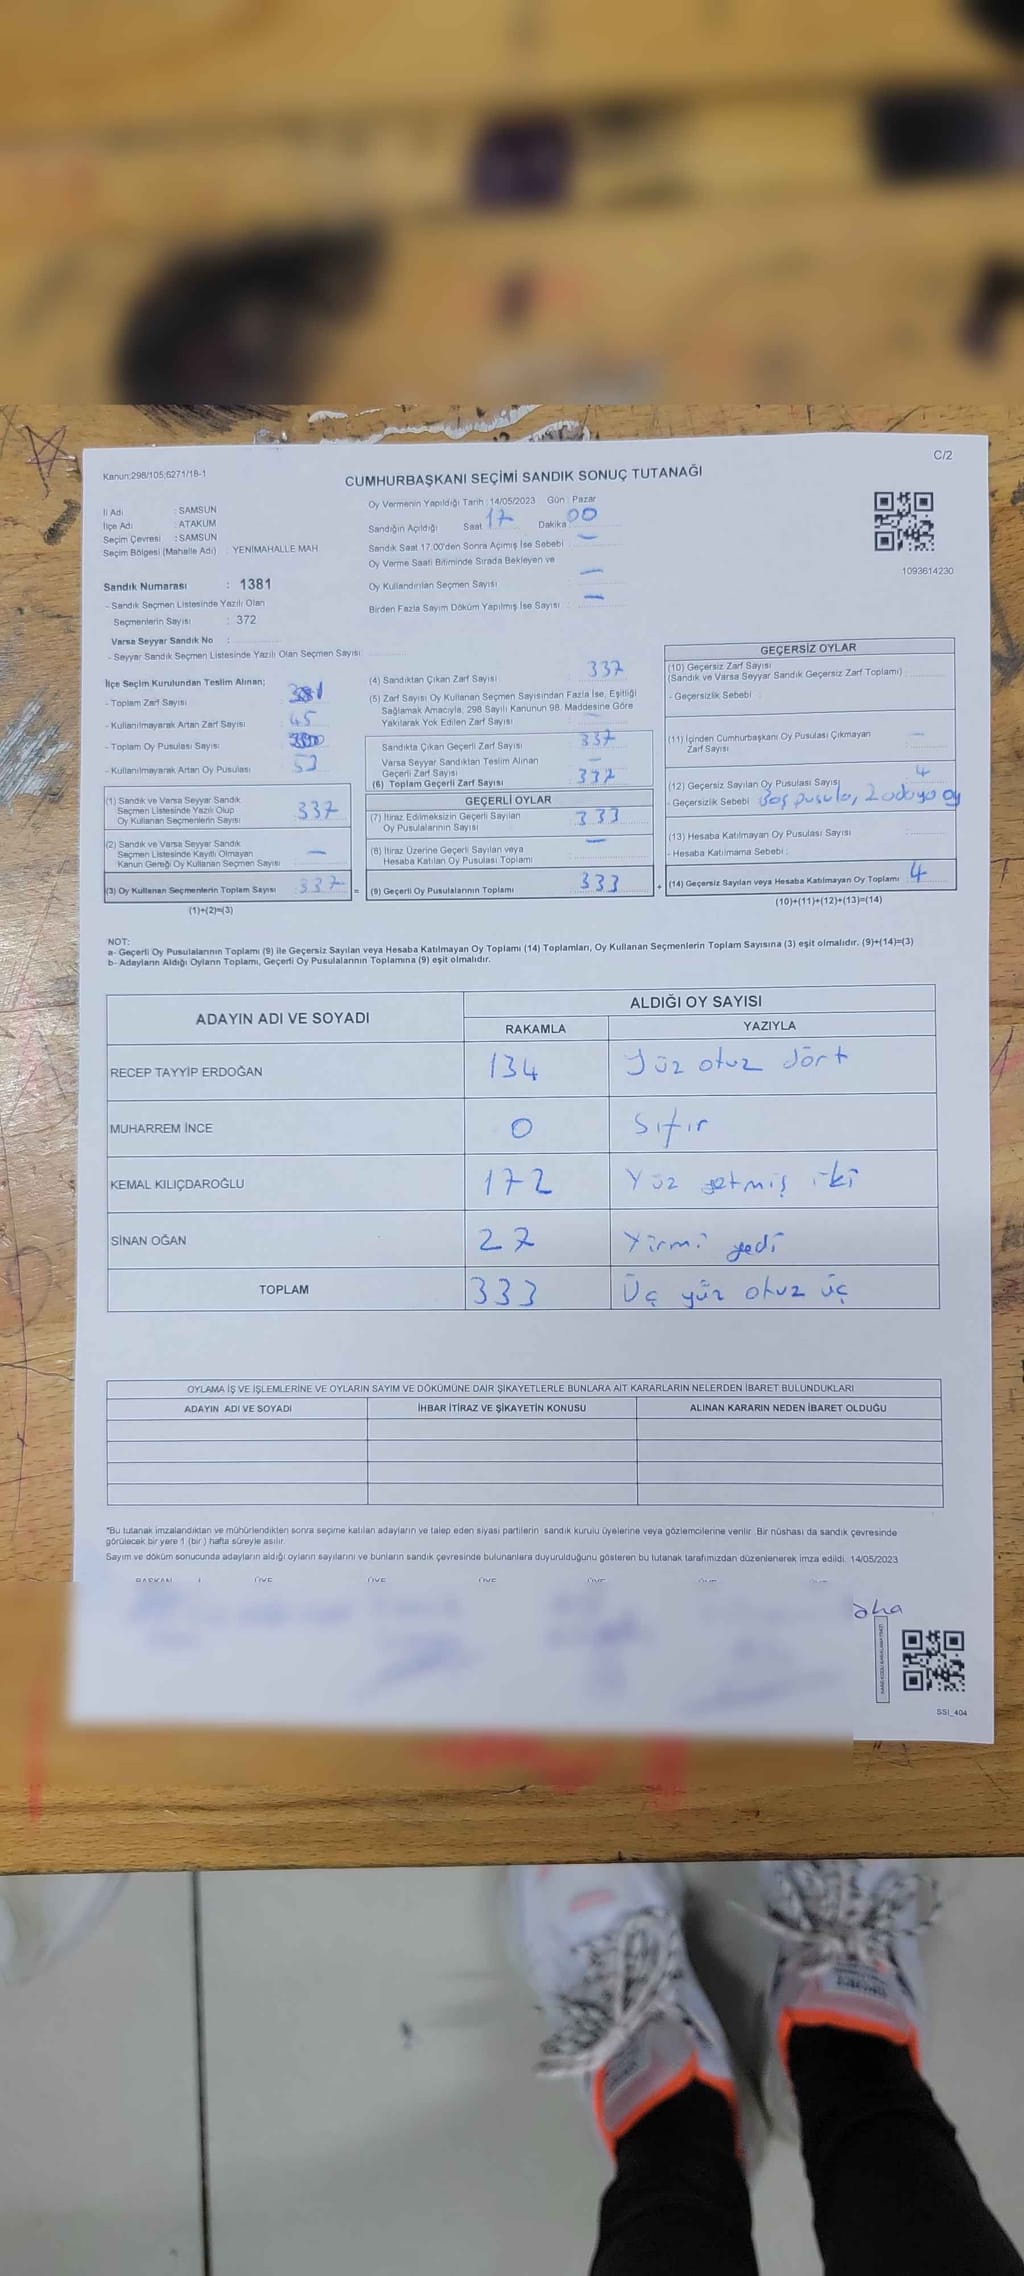 C/2
Kanun:298/105;6271/18-1
CUMHURBAŞKANI SEÇİMİ SANDIK SONUÇ TUTANAĞI
İl Adı : SAMSUN
İlçe Adı : ATAKUM
Seçim Çevresi : SAMSUN
Seçim Bölgesi (Mahalle Adı) : YENİMAHALLE MAH.
Sandık Numarası : 1381
- Sandık Seçmen Listesinde Yazılı Olan
Seçmenlerin Sayısı : 372
Varsa Seyyar Sandık No :
- Seyyar Sandık Seçmen Listesinde Yazılı Olan Seçmen Sayısı:
Oy Vermenin Yapıldığı Tarih : 14/05/2023 Gün : Pazar
Sandığın Açıldığı Saat 17 Dakika 00
Sandık Saat 17.00'den Sonra Açımış İse Sebebi : —
Oy Verme Saati Bitiminde Sırada Bekleyen ve
Oy Kullandırılan Seçmen Sayısı : —
Birden Fazla Sayım Döküm Yapılmış İse Sayısı : —
1093614230
İlçe Seçim Kurulundan Teslim Alınan;
- Toplam Zarf Sayısı :
- Kullanılmayarak Artan Zarf Sayısı : 45
- Toplam Oy Pusulası Sayısı :
- Kullanılmayarak Artan Oy Pusulası : 53
(1) Sandık ve Varsa Seyyar Sandık
Seçmen Listesinde Yazılı Olup
Oy Kullanan Seçmenlerin Sayısı : 337
(2) Sandık ve Varsa Seyyar Sandık
Seçmen Listesinde Kayıtlı Olmayan
Kanun Gereği Oy Kullanan Seçmen Sayısı : —
(3) Oy Kullanan Seçmenlerin Toplam Sayısı : 337 =
(1)+(2)=(3)
(4) Sandıktan Çıkan Zarf Sayısı : 337
(5) Zarf Sayısı Oy Kullanan Seçmen Sayısından Fazla İse, Eşitliği
Sağlamak Amacıyla, 298 Sayılı Kanunun 98. Maddesine Göre
Yakılarak Yok Edilen Zarf Sayısı : —
Sandıkta Çıkan Geçerli Zarf Sayısı : 337
Varsa Seyyar Sandıktan Teslim Alınan
Geçerli Zarf Sayısı : —
(6) Toplam Geçerli Zarf Sayısı : 337
GEÇERLİ OYLAR
(7) İtiraz Edilmeksizin Geçerli Sayılan
Oy Pusulalarının Sayısı : 333
(8) İtiraz Üzerine Geçerli Sayılan veya
Hesaba Katılan Oy Pusulası Toplamı : —
(9) Geçerli Oy Pusulalarının Toplamı : 333 +
GEÇERSİZ OYLAR
(10) Geçersiz Zarf Sayısı
(Sandık ve Varsa Seyyar Sandık Geçersiz Zarf Toplamı) :
- Geçersizlik Sebebi :
(11) İçinden Cumhurbaşkanı Oy Pusulası Çıkmayan
Zarf Sayısı : —
(12) Geçersiz Sayılan Oy Pusulası Sayısı : 4
- Geçersizlik Sebebi : Boş pusula, 2 adaya oy
(13) Hesaba Katılmayan Oy Pusulası Sayısı :
- Hesaba Katılmama Sebebi :
(14) Geçersiz Sayılan veya Hesaba Katılmayan Oy Toplamı : 4
(10)+(11)+(12)+(13)=(14)
NOT:
a- Geçerli Oy Pusulalarının Toplamı (9) ile Geçersiz Sayılan veya Hesaba Katılmayan Oy Toplamı (14) Toplamları, Oy Kullanan Seçmenlerin Toplam Sayısına (3) eşit olmalıdır. (9)+(14)=(3)
b- Adayların Aldığı Oyların Toplamı, Geçerli Oy Pusulalarının Toplamına (9) eşit olmalıdır.
ADAYIN ADI VE SOYADI
ALDIĞI OY SAYISI
RAKAMLA YAZIYLA
RECEP TAYYİP ERDOĞAN 134 Yüz otuz dört
MUHARREM İNCE 0 Sıfır
KEMAL KILIÇDAROĞLU 172 Yüz yetmiş iki
SİNAN OĞAN 27 Yirmi yedi
TOPLAM 333 Üç yüz otuz üç
OYLAMA İŞ VE İŞLEMLERİNE VE OYLARIN SAYIM VE DÖKÜMÜNE DAİR ŞİKAYETLERLE BUNLARA AİT KARARLARIN NELERDEN İBARET BULUNDUKLARI
ADAYIN ADI VE SOYADI İHBAR İTİRAZ VE ŞİKAYETİN KONUSU ALINAN KARARIN NEDEN İBARET OLDUĞU
*Bu tutanak imzalandıktan ve mühürlendikten sonra seçime katılan adayların ve talep eden siyasi partilerin sandık kurulu üyelerine veya gözlemcilerine verilir. Bir nüshası da sandık çevresinde
görülecek bir yere 1 (bir) hafta süreyle asılır.
Sayım ve döküm sonucunda adayların aldığı oyların sayılarını ve bunların sandık çevresinde bulunanlara duyurulduğunu gösteren bu tutanak tarafımızdan düzenlenerek imza edildi. 14/05/2023
BAŞKAN ÜYE ÜYE ÜYE ÜYE ÜYE ÜYE
SSI_404